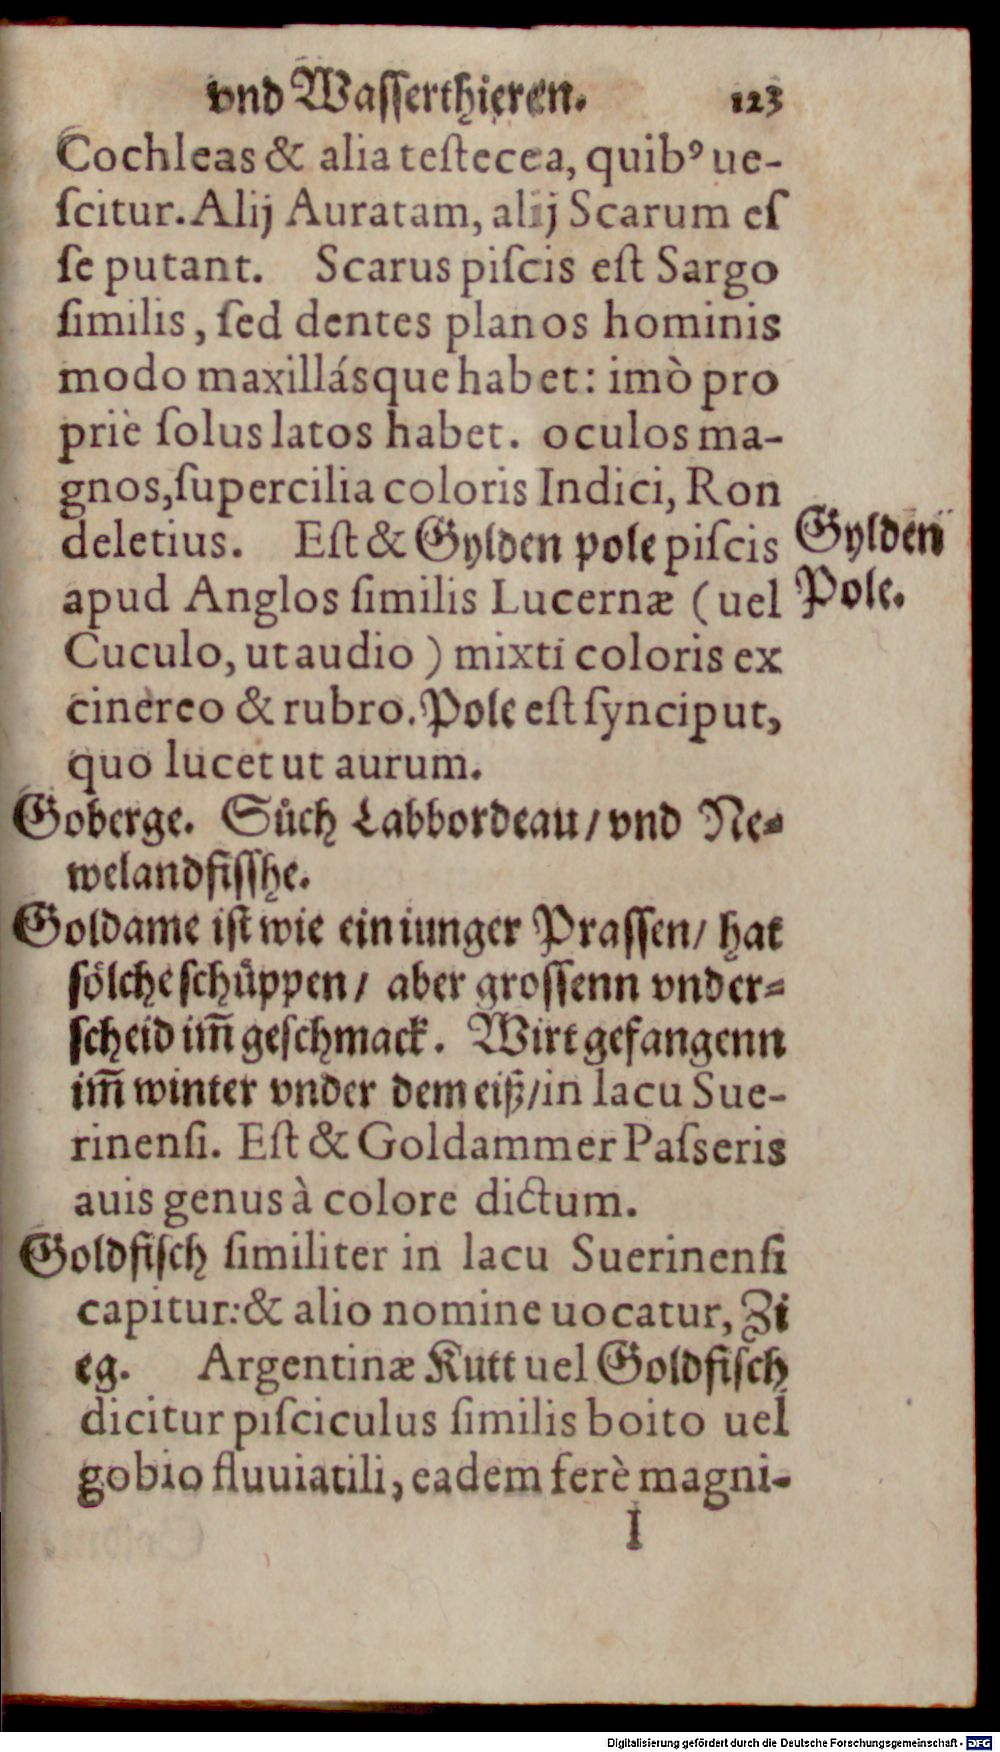 vnd Wasserthieren. 123
Cochleas & alia testecea, quibꝰ ue-
ſcitur. Alij Auratam, alij Scarum eſ
ſe putant. Scarus piſcis eſt Sargo
ſimilis, ſed dentes planos hominis
modo maxillásque habet: imò pro
priè ſolus latos habet. oculos ma-
gnos, ſupercilia coloris Indici, Ron
deletius. Eſt & Gylden pole piſcis
Gylden
apud Anglos ſimilis Lucernæ (uel
Pole.
Cuculo, ut audio) mixti coloris ex
cinereo & rubro. Pole eſt ſynciput,
quo lucet ut aurum.
Goberge. Sůch Labbordeau / vnd Ne-
welandfiſſhe.
Goldame iſt wie ein iunger Praſſen / hat
ſölche ſchůppen / aber groſſenn vnder-
ſcheid im̃ geſchmack. Wirt gefangenn
im̃ winter vnder dem eiß / in lacu Sue-
rinenſi. Eſt & Goldammer Paſſeris
auis genus à colore dictum.
Goldfiſch ſimiliter in lacu Suerinenſi
capitur: & alio nomine uocatur, Zi
eg. Argentinæ Kutt uel Goldfiſch
dicitur piſciculus ſimilis boito uel
gobio fluuiatili, eadem ferè magni-
I
Digitalisierung gefördert durch die Deutsche Forschungsgemeinschaft - DFG